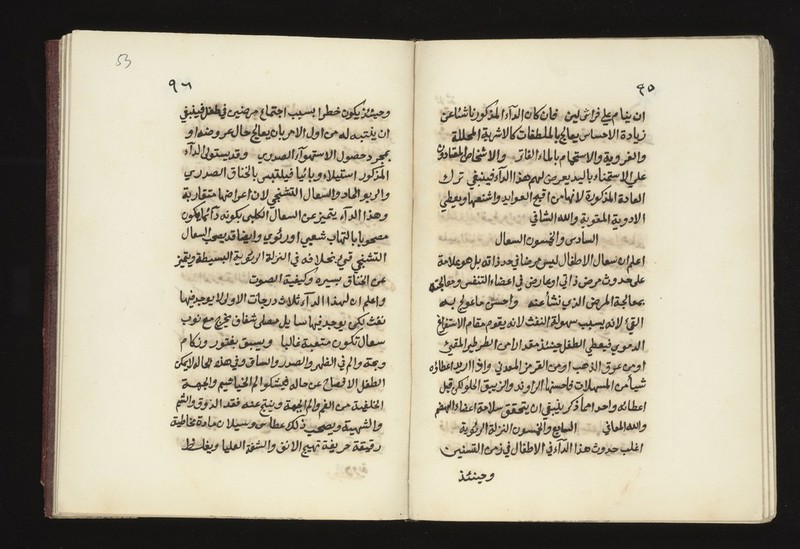 ٩٥
ان ينام على فراش لين فان كان الدآء المذكور ناشئا عن
زيادة الاحساس يعالج بالملطفات كالاشربة المحللة
والغروية والاستحمام بالماء الفاتر والاشخاص المعتادون
على الاستمناء باليد يعرض لهم هذا الدآء فينبغي ترك
العادة المذكورة لانها من اقبح العوايد واشنعها ويعطى
الادوية المقوية والله الشافي
السادس والخمسون السعال
اعلم ان سعال الاطفال ليس مرضا في حد ذاته بل هو علامة
على حدوث مرض ذاتي او عارض في اعضاء التنفس ومعالجته
بمعالجة المرض الذي نشأ عنه واحسن ما عولج به
القئ لانه يسبب سهولة النفث لانه يقوم مقام الاستفراغ
الدموي فيعطى الطفل حينئذ مقدارا من الطرطير المقيئ
او من عرق الذهب او من القرمز المعدني واذا اريد اعطاؤه
شيأ من المسهلات فاحسنها الراوند والزيبق الحلو لكن قبل
اعطائه واحدا مما ذكر ينبغي ان يتحقق سلامة اعضاء الهضم
والله المعافي السابع والخمسون النزلة الرئوية
اغلب حدوث هذا الدآء في الاطفال في زمن التسنين
وحينئذ
53
٩٦
وحينئذ يكون خطرا بسبب اجتماع مرضين في طفل فينبغي
ان ينتبه له من اول الامر بان يعالج حال عروضه او
بمجرد حصول الاستهوآء الصدري وقد يستولى الدآء
المذكور استيلاء وبائيا فيلتبس بالخناق الصدري
والربو الحاد والسعال التشنجي لان اعراضها متقاربة
وهذا الدآء يتميز عن السعال الكلبى بكونه دائما يكون
مصحوبا بالتهاب شعبي او رئوي وايضا قد يصحب السعال
التشنجي قئ بخلافه في النزلة الرئوية البسيطة ويتميز
عن الخناق بسيره وكيفية الصوت
واعلم ان لهذا الدآء ثلاث درجات الاولى لا يوجد فيها
نفث لكن يوجد فيها سايل مصلى شفاف يخرج مع نوب
سعال تكون متعبة غالبا ويسبق بفتور وزكام
وبحة والم في الظهر والصدر والساق وفي هذه الحالة لا يمكن
الطفل الافصاح عن حاله فيشكو الم الخياشيم والجهة
الخلفية من الفم والم الجبهة وينتج عنه فقد الذوق والشم
والشهية ويصحب ذلك عطاس وسيلان مادة مخاطية
رقيقة حريفة تهيج الانف والشفة العليا ويغلظ